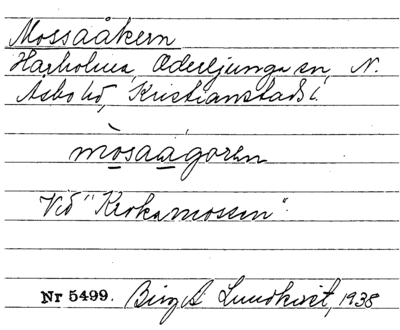 Mossaåkern
Harholma, Oderljunga sn, N.
Åsbo hd, Kristianstads l.
mòsaágoren
Vid "Krokamossen".
Nr 5499. Birg A Lundkvist, 1938